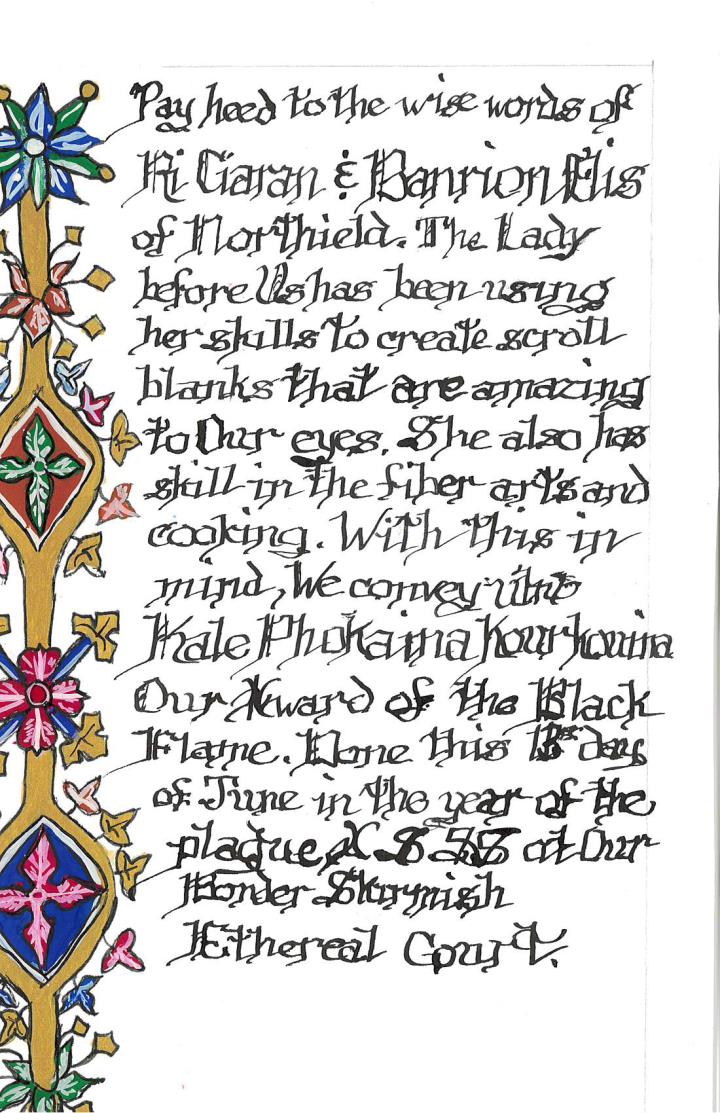 Pay heed to the wise words of
Ri Ciaran & Banrion Elis
of Northield. The Lady
before Us has been using
her skills to create scroll
blanks that are amazing
to Our eyes. She also has
skill in the fiber arts and
cooking. With this in
mind, We convey unto
Kale Phokaina Kourkouina
Our Award of the Black
Flame. Done this 13th day
of June in the year of the
plague, A.S. 55 at Our
Border Skirmish
Ethereal Court.